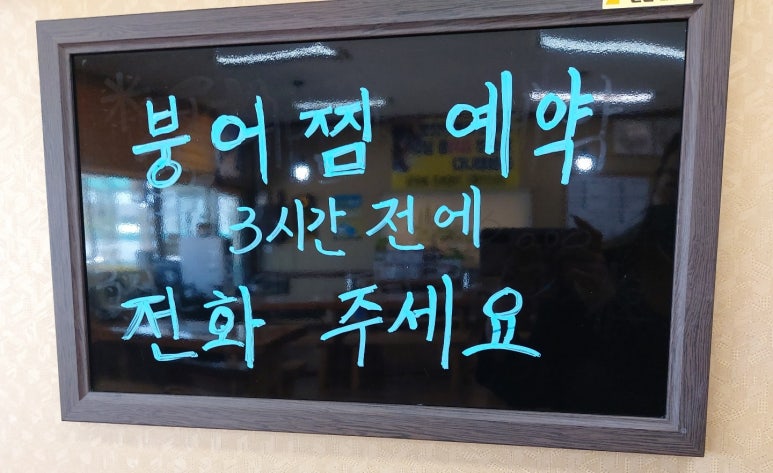 붕어찜 예약
3시간 전에
전화 주세요